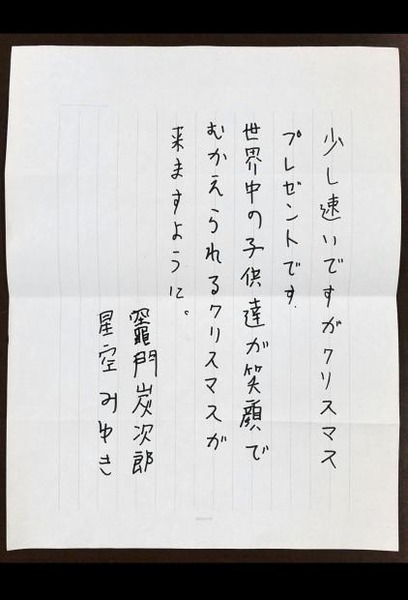 少し速いですがクリスマス
プレゼントです.
世界中の子供達が笑顔で
むかえられるクリスマスが
来ますように。
竈門炭次郎
星空みゆき